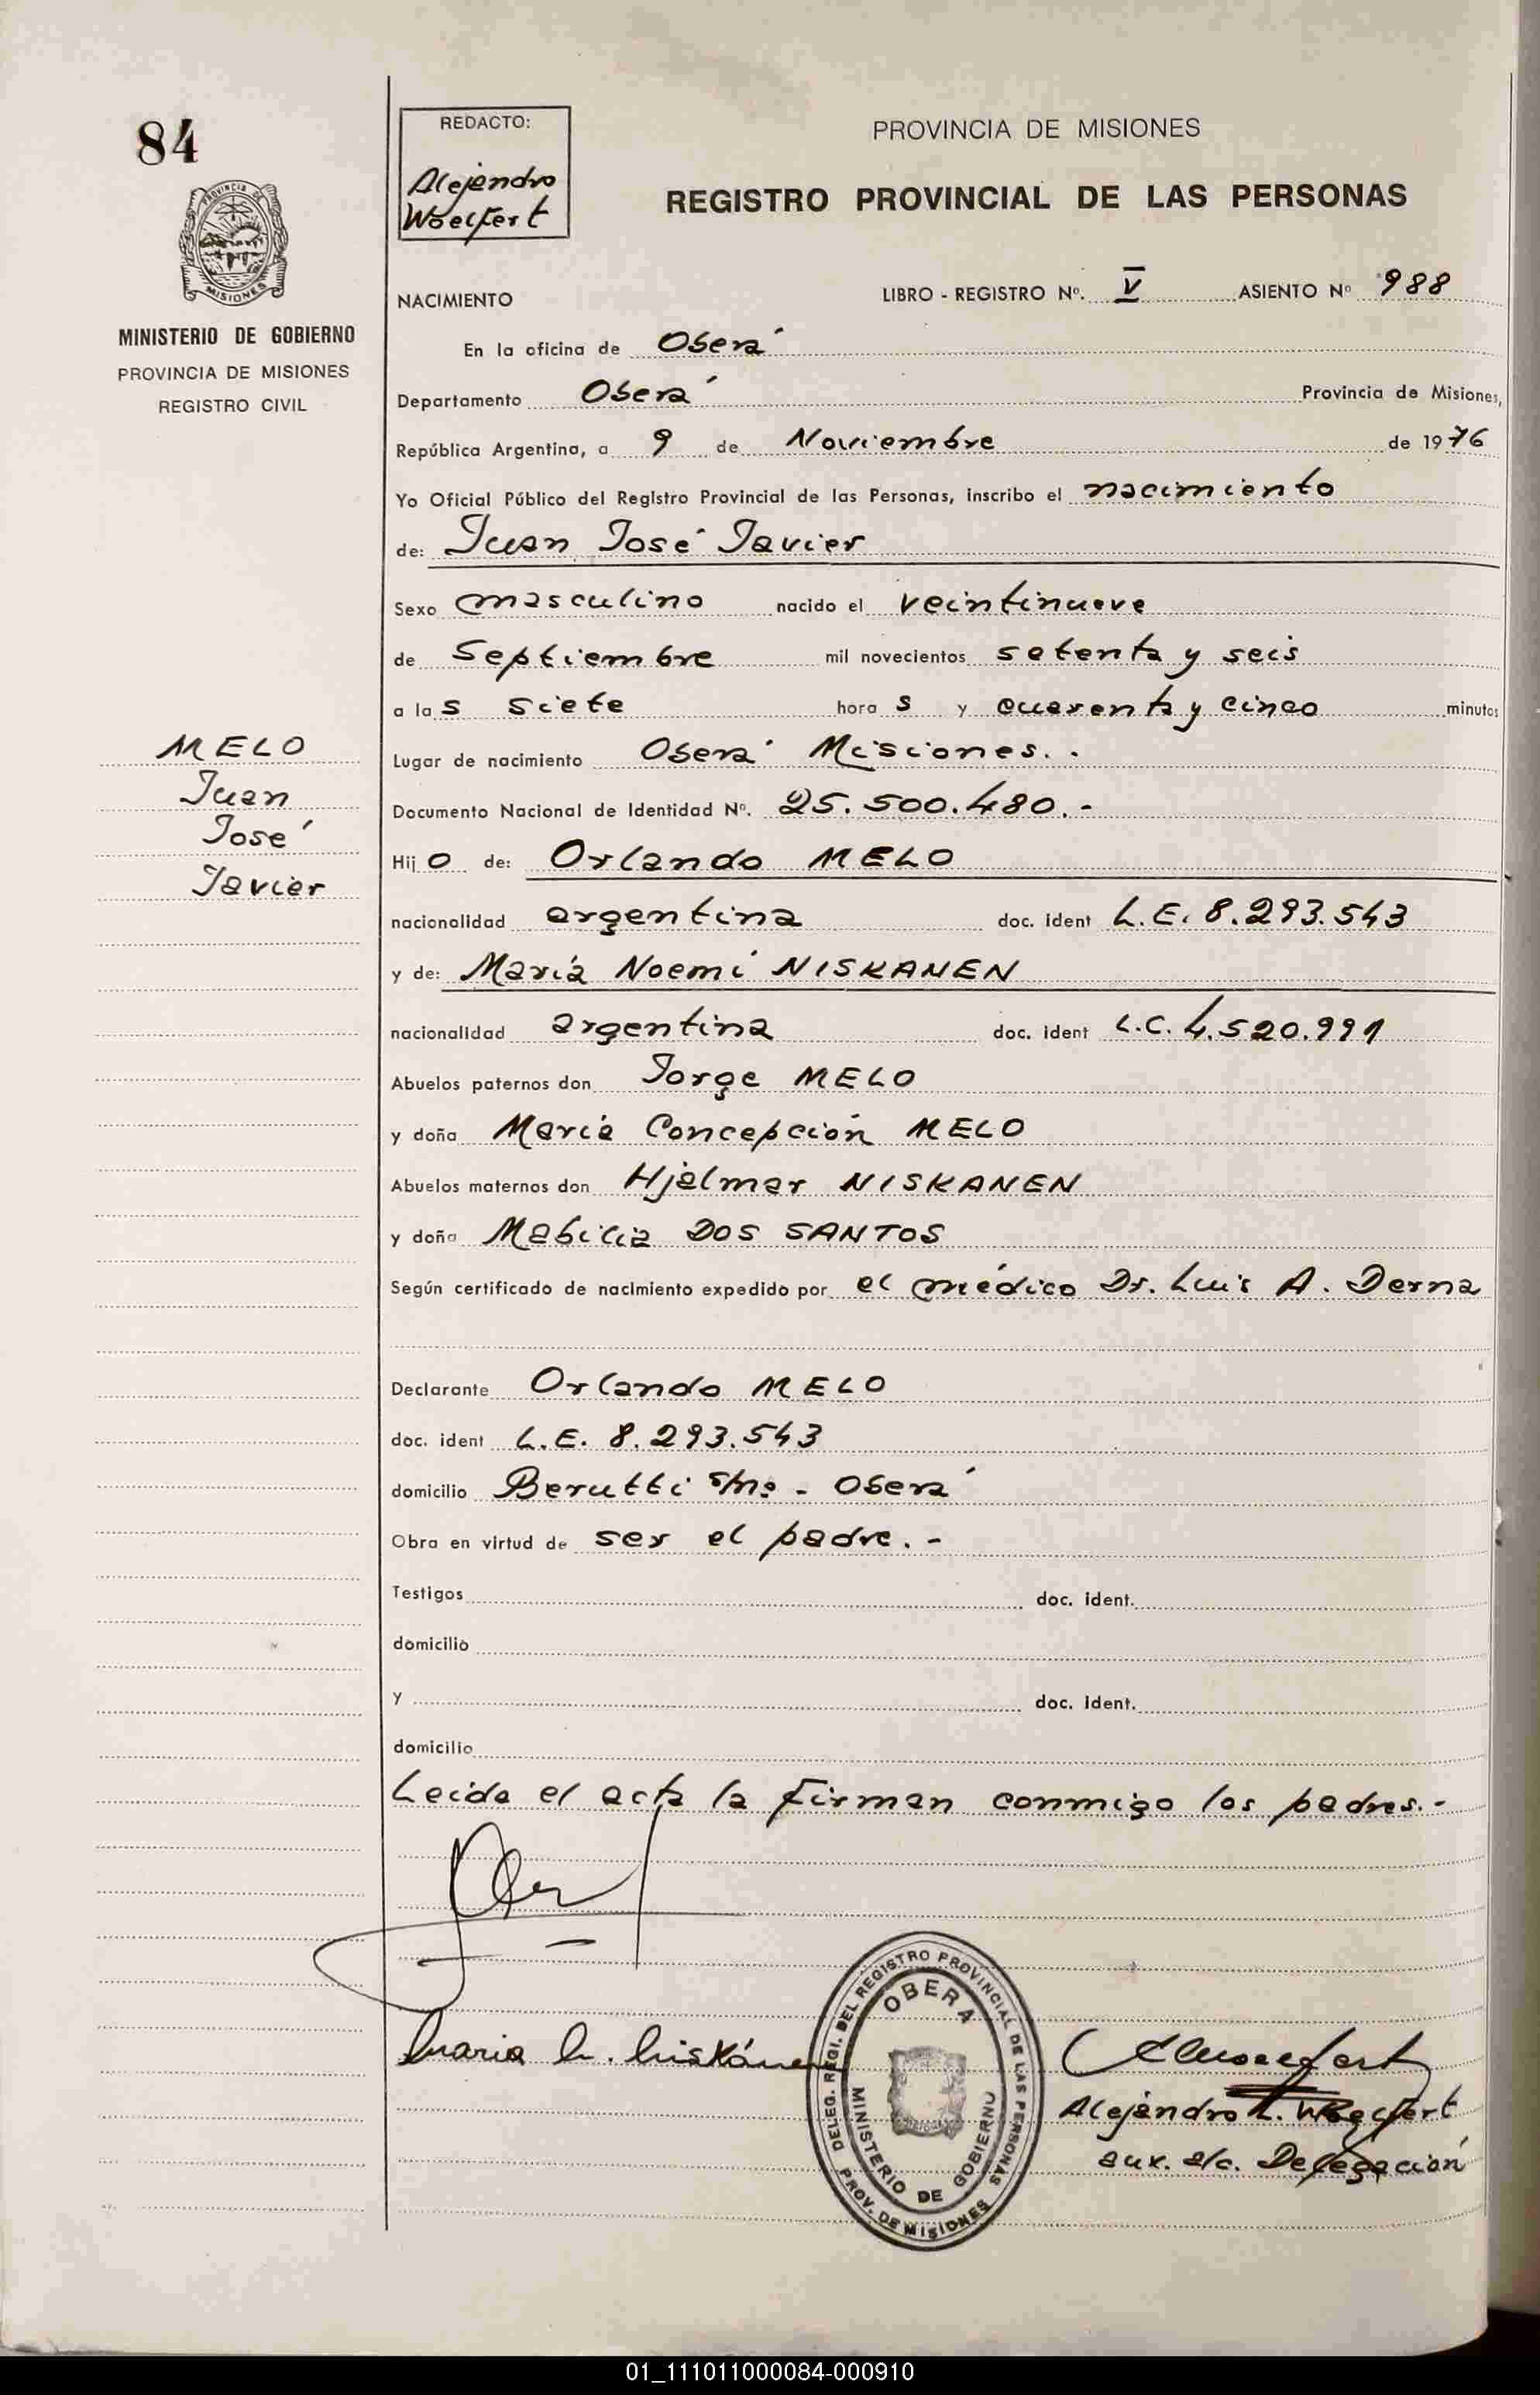 84
REDACTO:
Alejandro
Woelfert
PROVINCIA DE MISIONES
REGISTRO PROVINCIAL DE LAS PERSONAS
PROVINCIA DE
MISIONES
MINISTERIO DE GOBIERNO
PROVINCIA DE MISIONES
REGISTRO CIVIL
NACIMIENTO
LIBRO - REGISTRO Nº. V ASIENTO Nº 988
En la oficina de Oberá
Departamento Oberá Provincia de Misiones,
República Argentina, a 9 de Noviembre de 1976
Yo Oficial Público del Registro Provincial de las Personas, inscribo el nacimiento
de: Juan José Javier
Sexo masculino nacido el veintinueve
de Septiembre mil novecientos setenta y seis
a las siete horas y cuarenta y cinco minutos
MELO
Juan
José
Javier
Lugar de nacimiento Oberá Misiones. -
Documento Nacional de Identidad Nº. 25.500.480. -
Hijo de: Orlando MELO
nacionalidad argentina doc. ident L.E. 8.293.543
y de: María Noemí NISKANEN
nacionalidad argentina doc. ident L.C. 4.520.991
Abuelos paternos don Jorge MELO
y doña María Concepción MELO
Abuelos maternos don Hjalmar NISKANEN
y doña Mabilia DOS SANTOS
Según certificado de nacimiento expedido por el médico Dr. Luis A. Derna
Declarante Orlando MELO
doc. ident L.E. 8.293.543
domicilio Berutti s/nº - Oberá
Obra en virtud de ser el padre. -
Testigos doc. ident.
domicilio
y doc. ident.
domicilio
Leida el acta la firman conmigo los padres. -
Maria N. Niskánen
DELEG. REGI. DEL REGISTRO PROVINCIAL DE LAS PERSONAS
OBERA
MINISTERIO DE GOBIERNO
PROV. DE MISIONES
Alejandro L. Woelfert
aux. a/c. Delegación
01_111011000084-000910